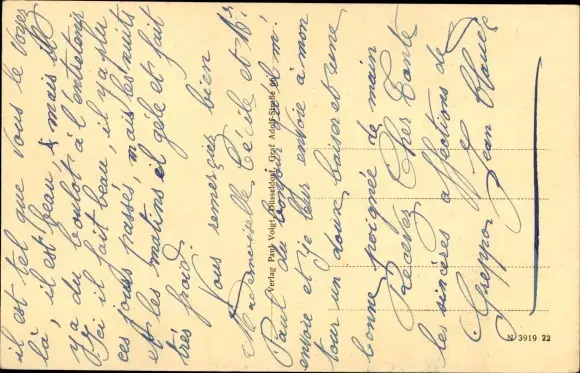 il est tel que vous le voyez
là, il est beau & mais il
y a du boulot à l'entretenir
Ici il fait beau, il y a plu
ces jours passés, mais les nuits
et les matins il gèle et fait
très froid.
Vous remerciez bien
Mademoiselle Cécile et Mr
Paul du bonjour qu'il m'
envoie et je leur envoie à mon
tour un doux baiser et une
bonne poignée de main
Recevez Cher
les sincères affections de
Jean
Verlag Paul Voigt, Düsseldorf, Graf Adolf-Straße
N 3919 22